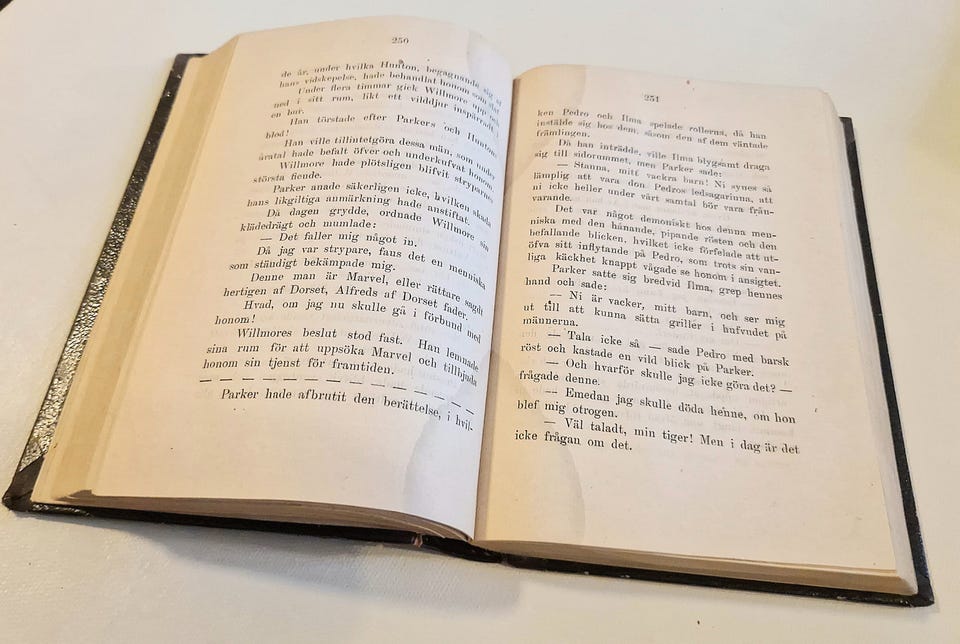 250
de år, under hvilka Hunton, begagnande sig af
hans vidskepelse, hade behandlat honom som slaf.
Under flera timmar gick Willmore upp och
ned i sitt rum, likt ett vilddjur inspärradt i
en bur.
Han törstade efter Parkers och Huntons
blod!
Han ville tillintetgöra dessa män, som under
åratal hade befalt öfver och underkufvat honom.
Willmore hade plötsligen blifvit stryparnes
största fiende.
Parker anade säkerligen icke, hvilken skada
hans likgiltiga anmärkning hade anstiftat.
Då dagen grydde, ordnade Willmore sin
klädedrägt och mumlade:
— Det faller mig något in.
Då jag var strypare, fans det en menniska
som ständigt bekämpade mig.
Denne man är Marvel, eller rättare sagdt
hertigen af Dorset, Alfreds af Dorset fader.
Hvad, om jag nu skulle gå i förbund med
honom!
Willmores beslut stod fast. Han lemnade
sina rum för att uppsöka Marvel och tillbjuda
honom sin tjenst för framtiden.
— — — — — — — — — — — — —
Parker hade afbrutit den berättelse, i hvil-
251
ken Pedro och Ilma spelade rollerna, då han
instälde sig hos dem, såsom den af dem väntade
främlingen.
Då han inträdde, ville Ilma blygsamt draga
sig till sidorummet, men Parker sade:
— Stanna, mitt vackra barn! Ni synes så
lämplig att vara don Pedros ledsagarinna, att
ni icke heller under vårt samtal bör vara från-
varande.
Det var något demoniskt hos denna men-
niska med den hånande, pipande rösten och den
befallande blicken, hvilket icke förfelade att ut-
öfva sitt inflytande på Pedro, som trots sin van-
liga käckhet knappt vågade se honom i ansigtet.
Parker satte sig bredvid Ilma, grep hennes
hand och sade:
— Ni är vacker, mitt barn, och ser mig
ut till att kunna sätta griller i hufvudet på
männerna.
— Tala icke så — sade Pedro med barsk
röst och kastade en vild blick på Parker.
— Och hvarför skulle jag icke göra det? —
frågade denne.
— Emedan jag skulle döda henne, om hon
blef mig otrogen.
— Väl taladt, min tiger! Men i dag är det
icke frågan om det.